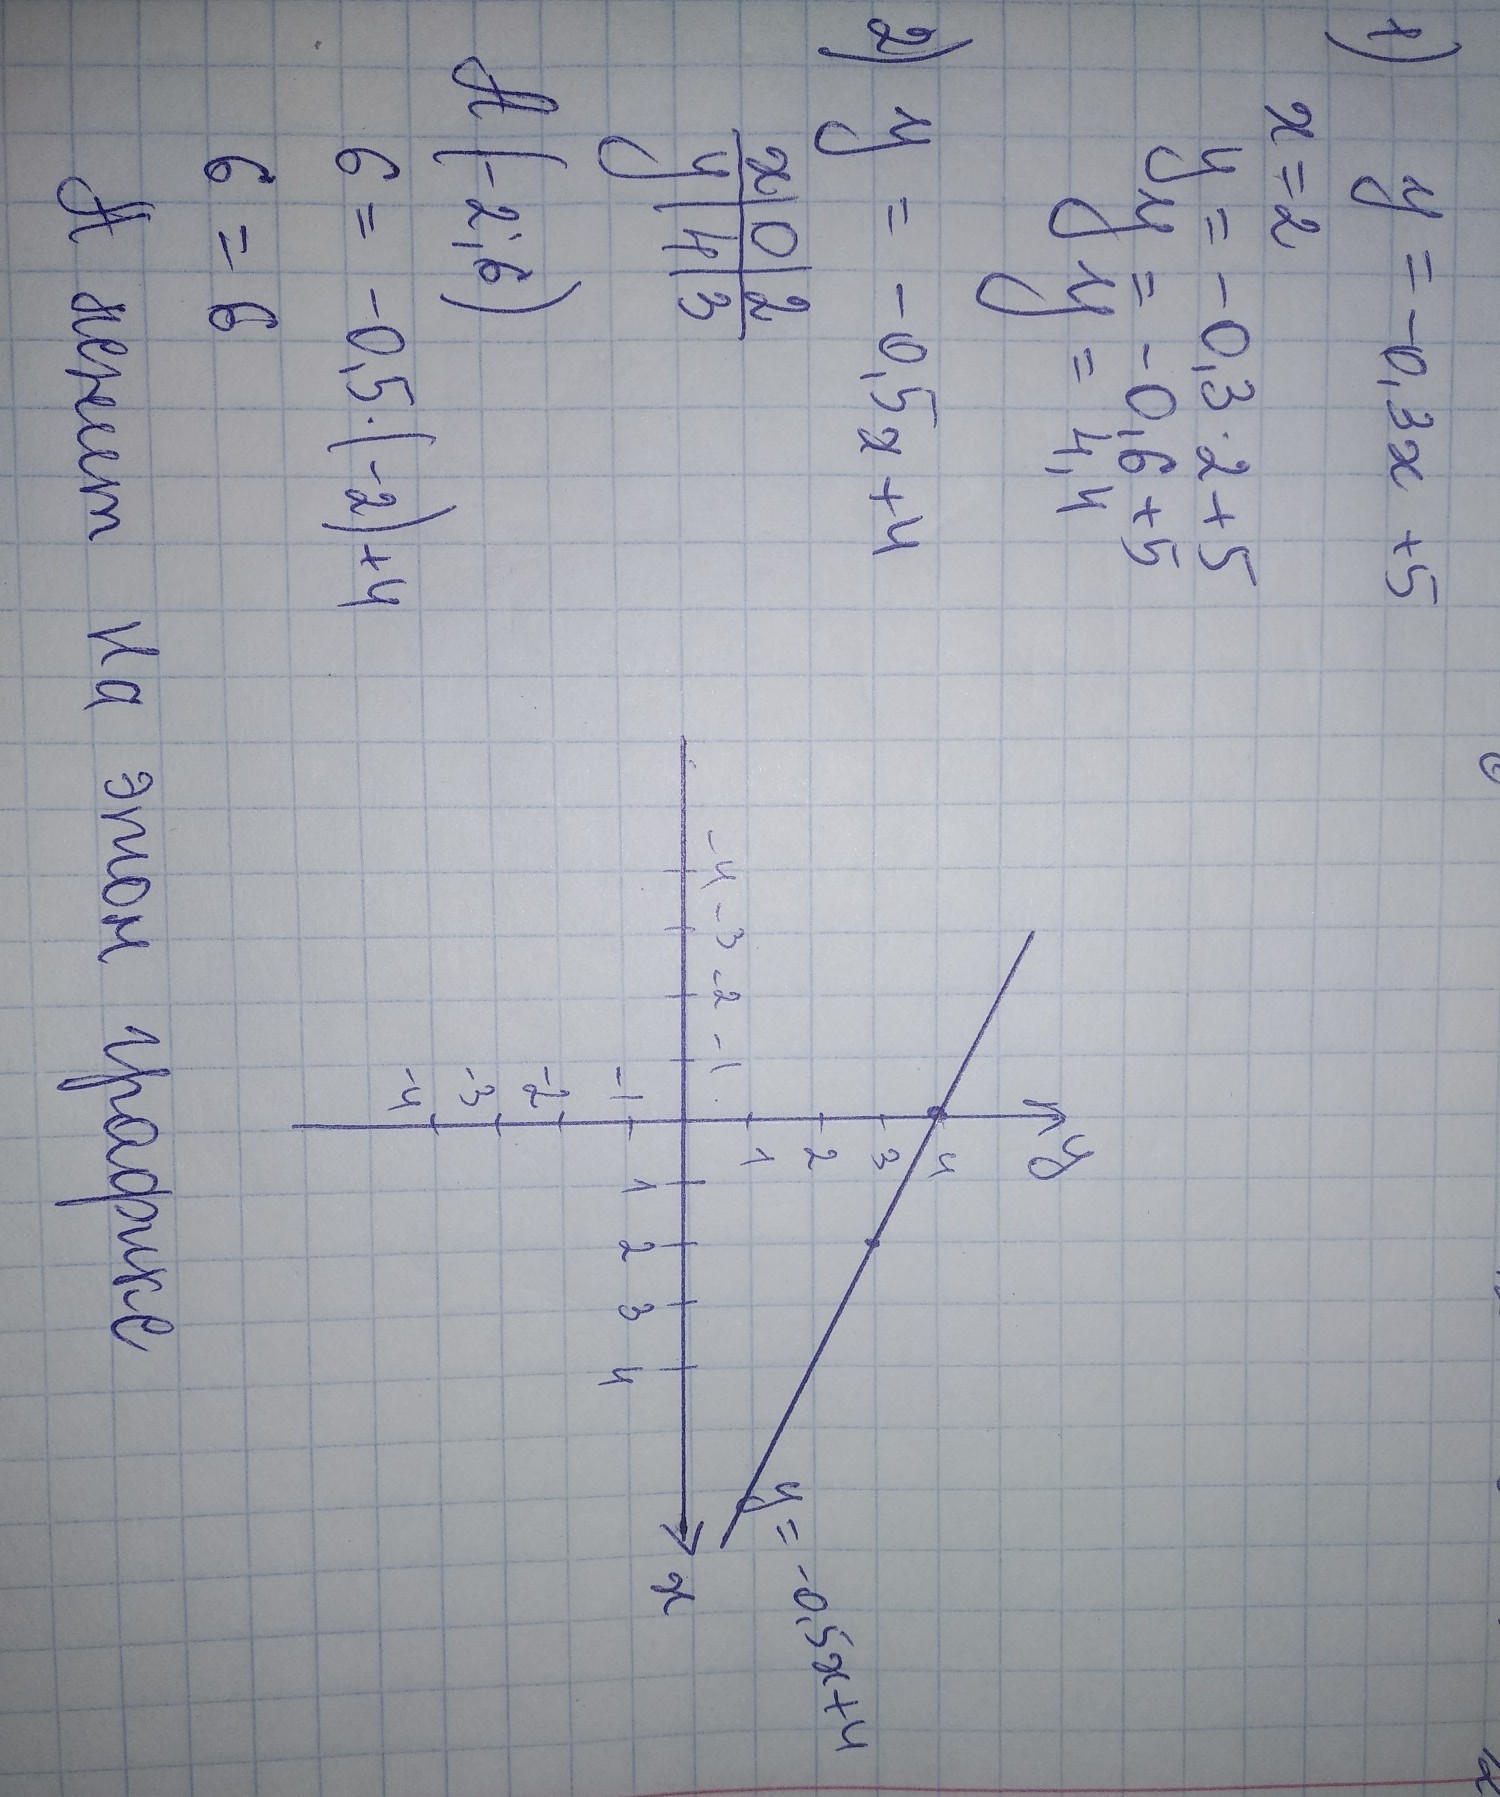 1) y = -0,3x + 5
x = 2
y = -0,3·2+5
y = -0,6+5
y = 4,4
2) y = -0,5x+4
x 0 2
y 4 3
A(-2; 6)
6 = -0,5·(-2)+4
6 = 6
A лежит на этом графике
y
4
3
2
1
-4 -3 -2 -1
1 2 3 4
x
-1
-2
-3
-4
y = -0,5x+4